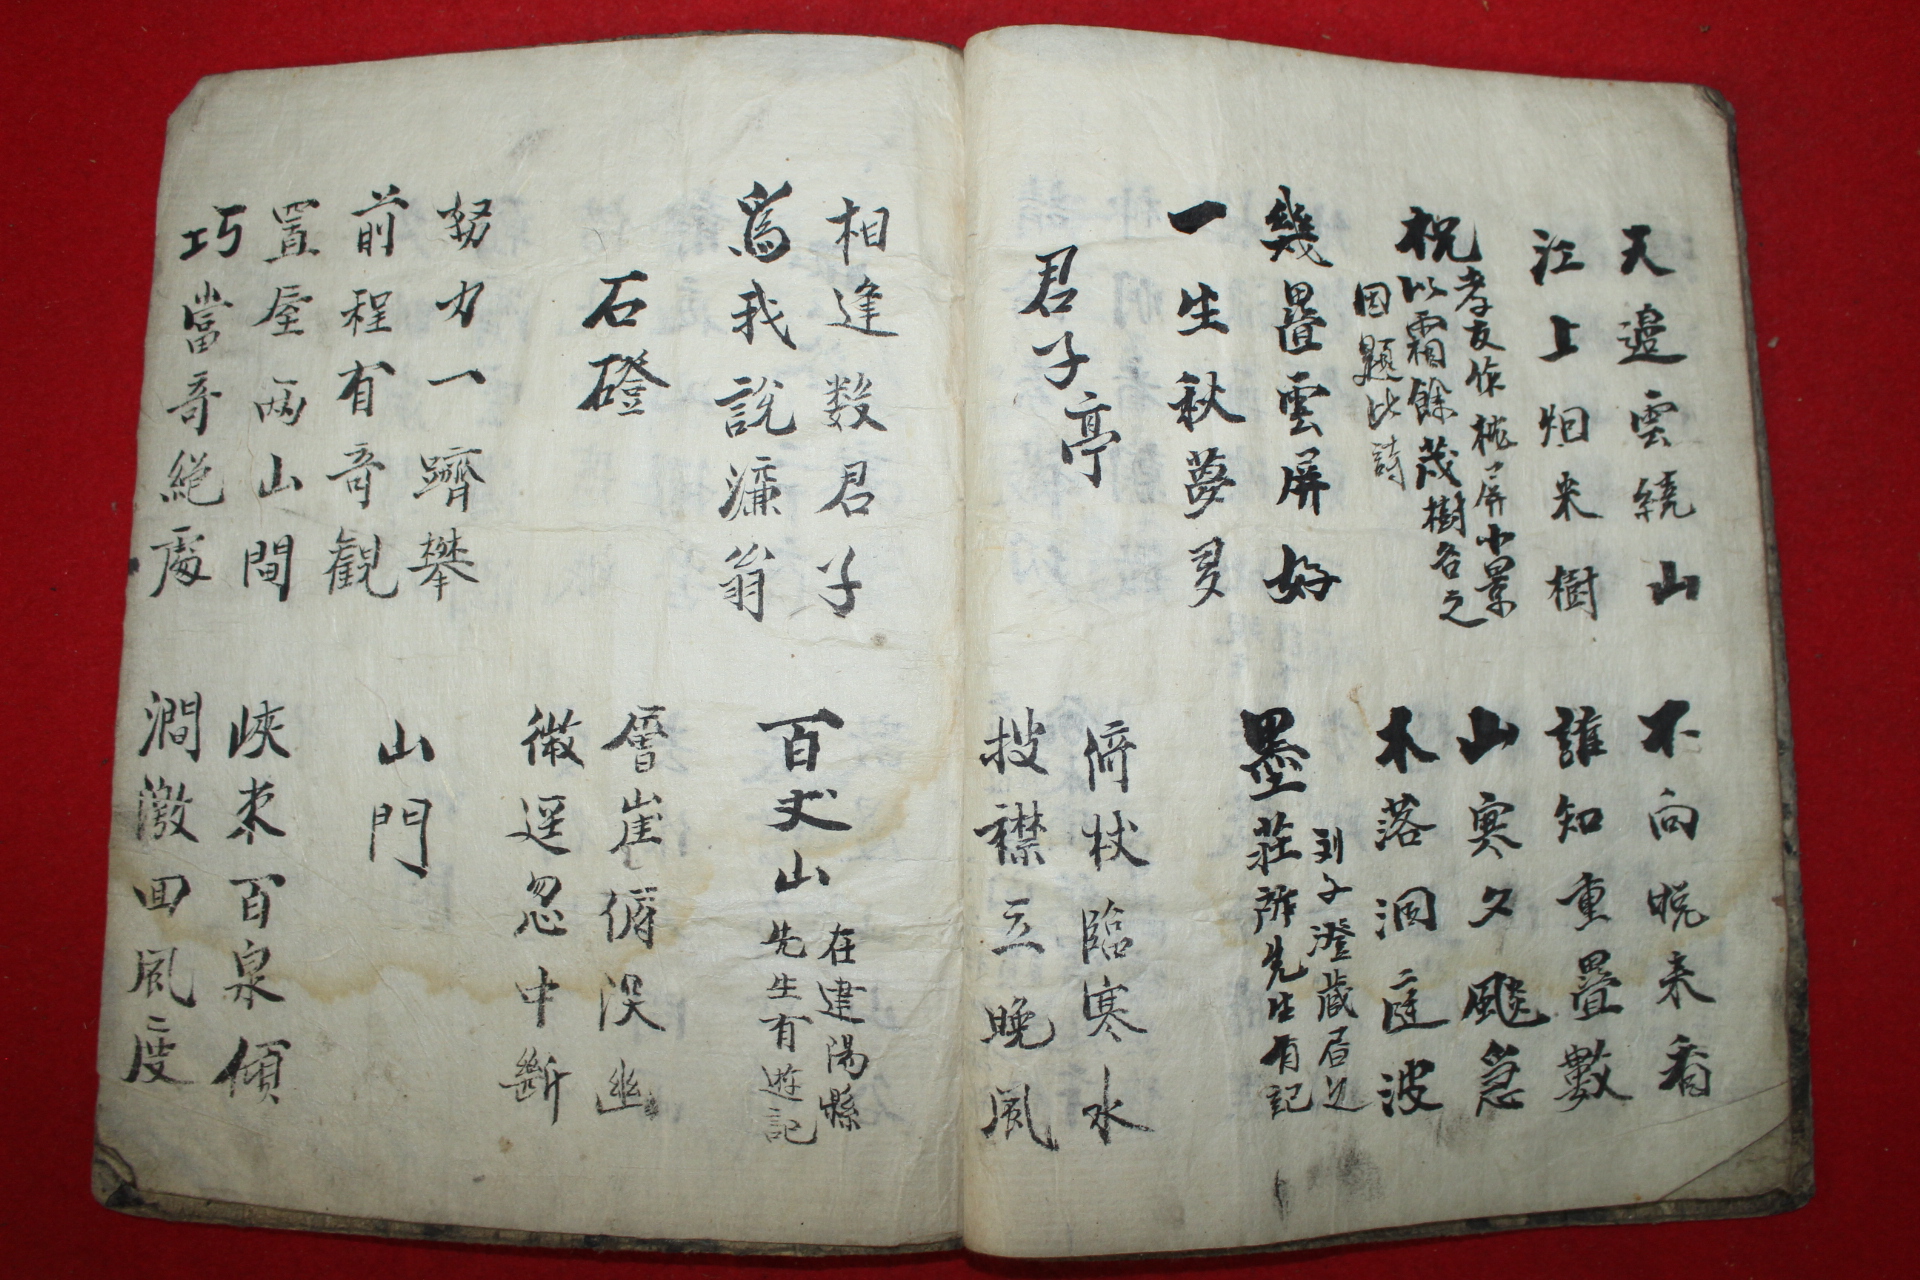 天邊雲繞山
江上烟来樹
不向晚来看
誰知重疊數
祝孝友作枕屏小景
以霜餘茂樹名之
因題此詩
山寒夕飈急
木落洞庭波
幾疊雲屏好
一生秋夢多
墨莊 刘子澄蔵書之
所先生有記
君子亭
倚杖臨寒水
披襟立晚風
相逢数君子
爲我說濂翁
百丈山 在建陽縣
先生有遊記
石磴
層崖俯深幽
微逕忽中斷
努力一躋攀
前程有奇觀
山門
置屋兩山間
巧當奇絶處
峽束百泉傾
澗激回風度